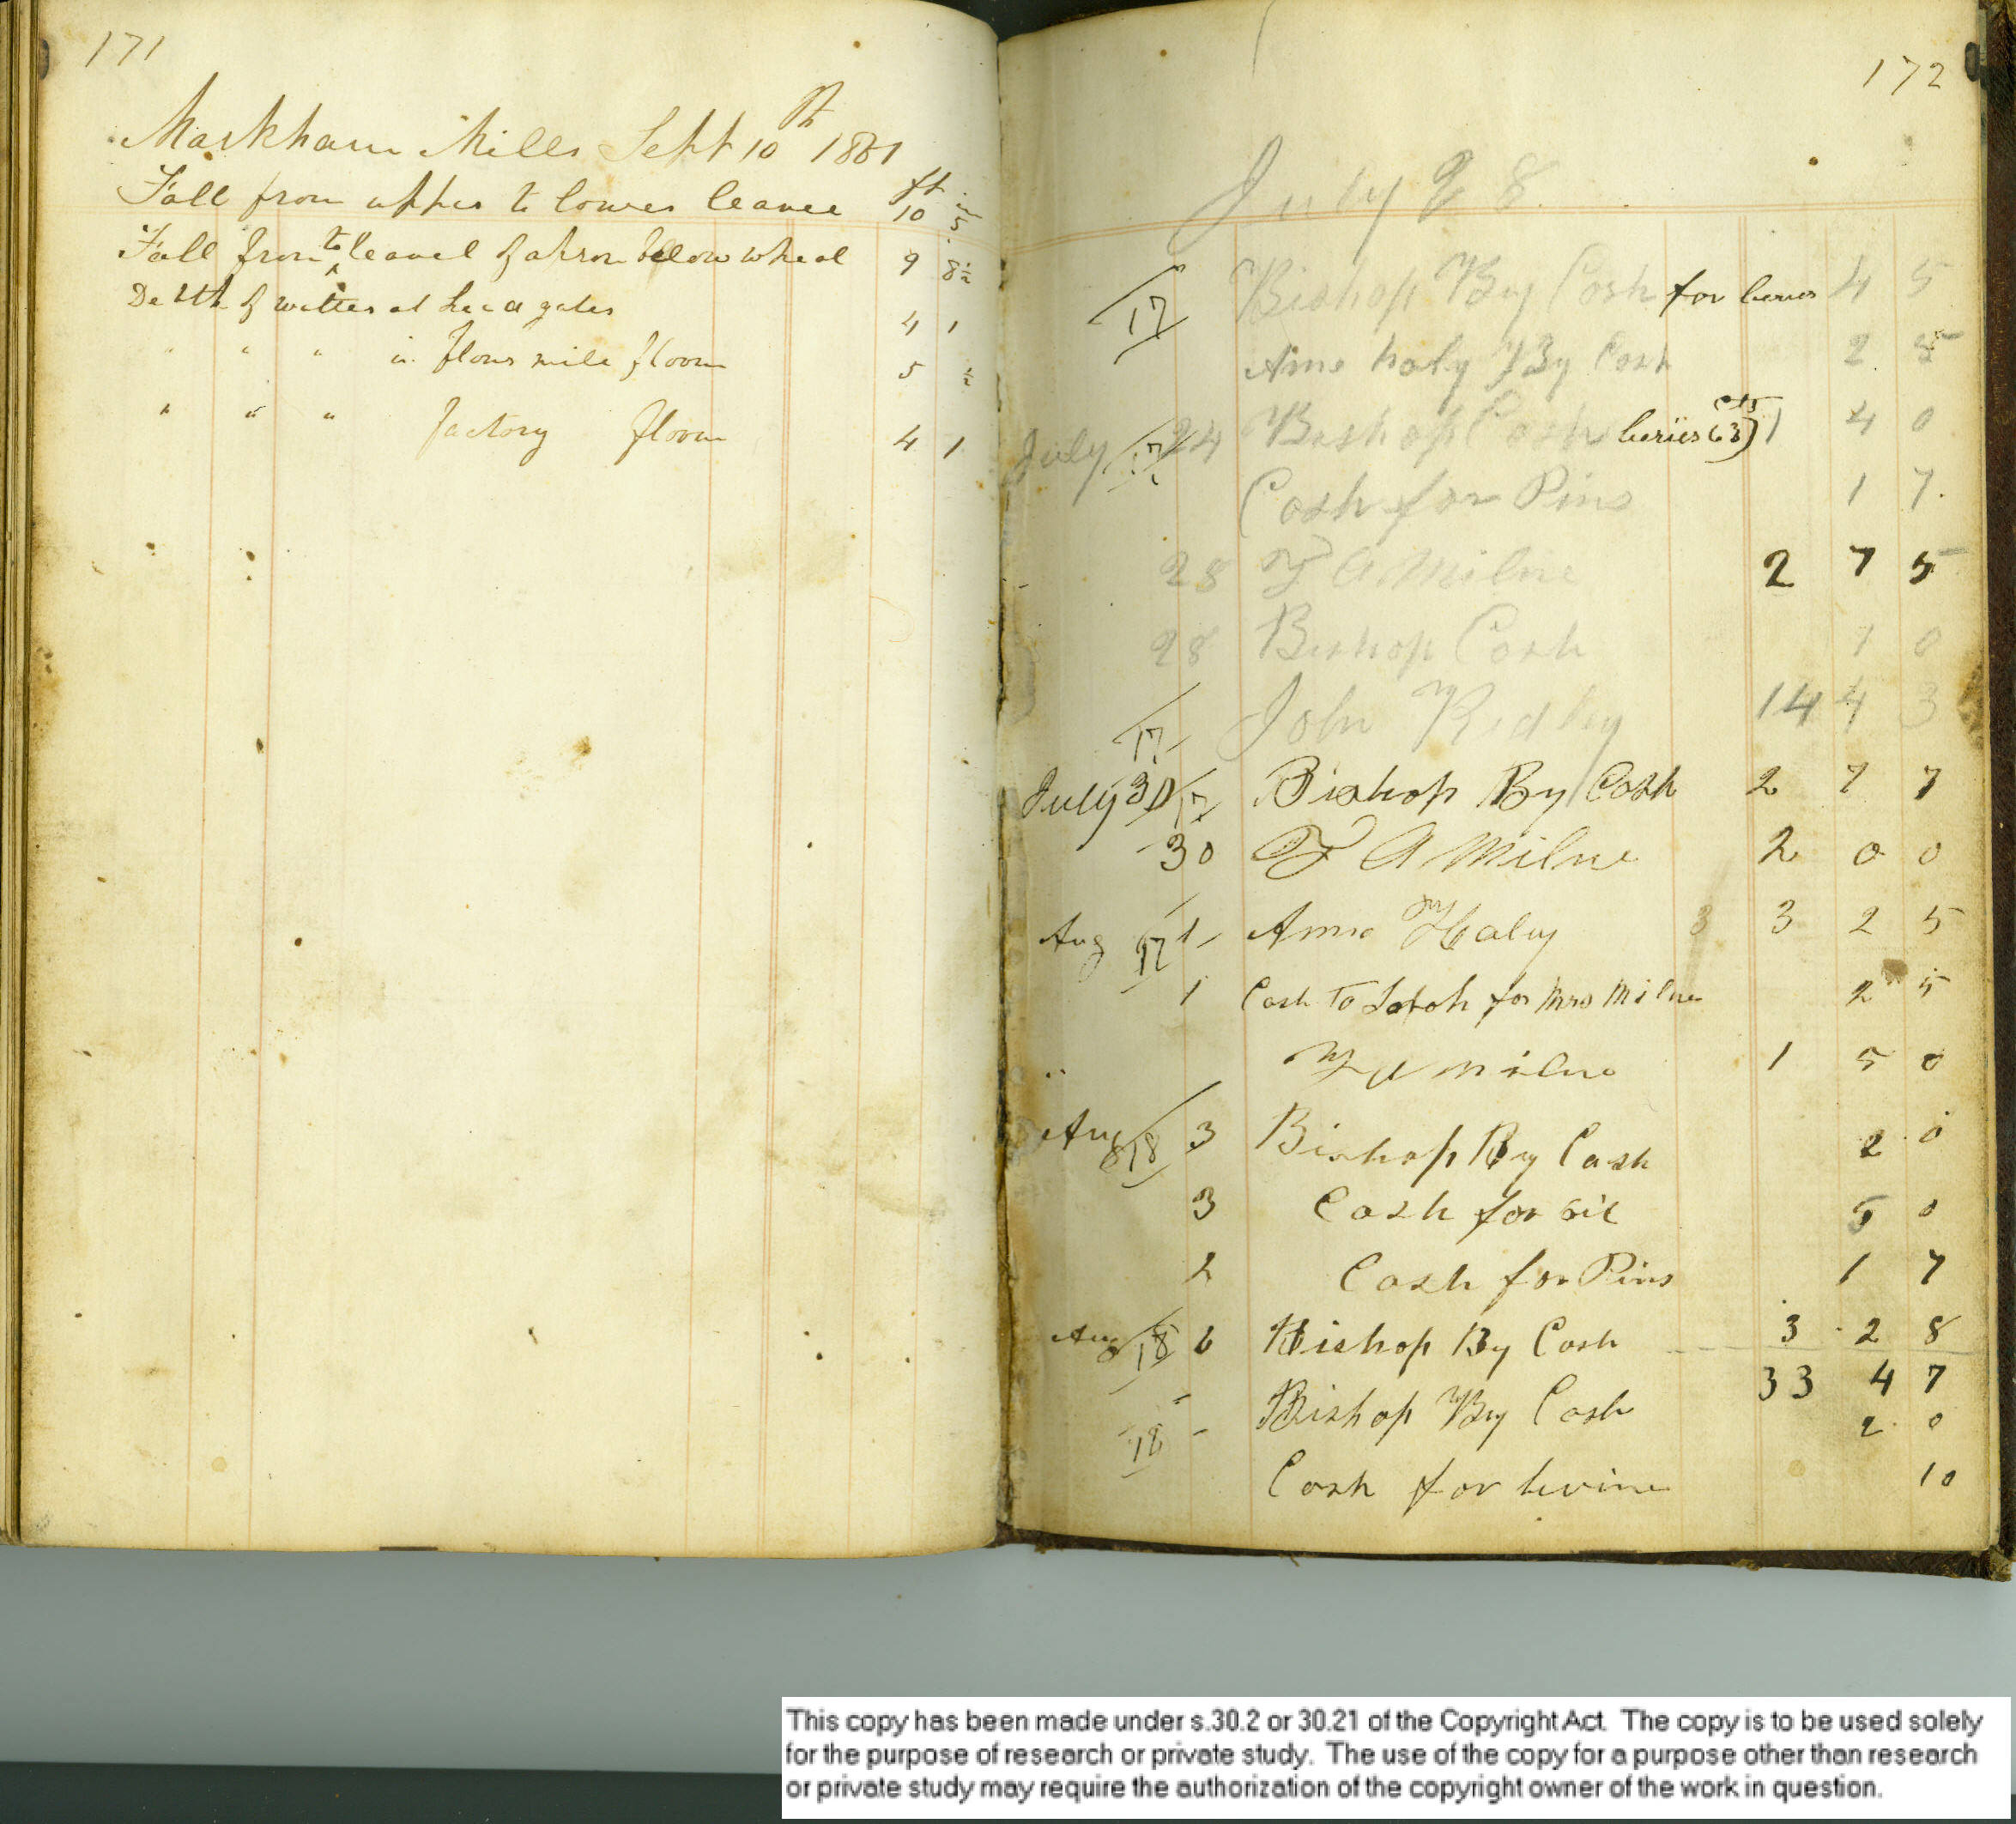 171
Markham Mills Sept 10th 1861
Fall from upper to lower leavel ft 10 in 5
Fall from to leavel of apron below wheel 9 8 1/2
Depth of watter at head gates 4 1
" " " in flour mill floom 5 1/2
" " " factory floom 4 1
172
July 28
17 Bishop By Cash for beries 4 5
Ame haly By Cash 2 5
July 17 24 Bishop Cash beries (63 cts) 1 4 0
Cash for Pins 1 7
28 T A Milne 2 7 5
28 Bishop Cash 1 0
17 John Ridley 14 4 3
July 30 17 Bishop By Cash 2 7 7
30 T A Milne 2 0 0
Aug 17 1 Anne Haley 3 3 2 5
1 Cash To for Mrs Milne 2 5
T A Milne 1 5 0
Aug 18 3 Bishop By Cash 2 0
3 Cash for oil 5 0
2 Cash for Pins 1 7
Aug 18 6 Bishop By Cash 3 2 8
33 4 7
18 " Bishop By Cash 2 0
Cash for 10
This copy has been made under s.30.2 or 30.21 of the Copyright Act. The copy is to be used solely
for the purpose of research or private study. The use of the copy for a purpose other than research
or private study may require the authorization of the copyright owner of the work in question.